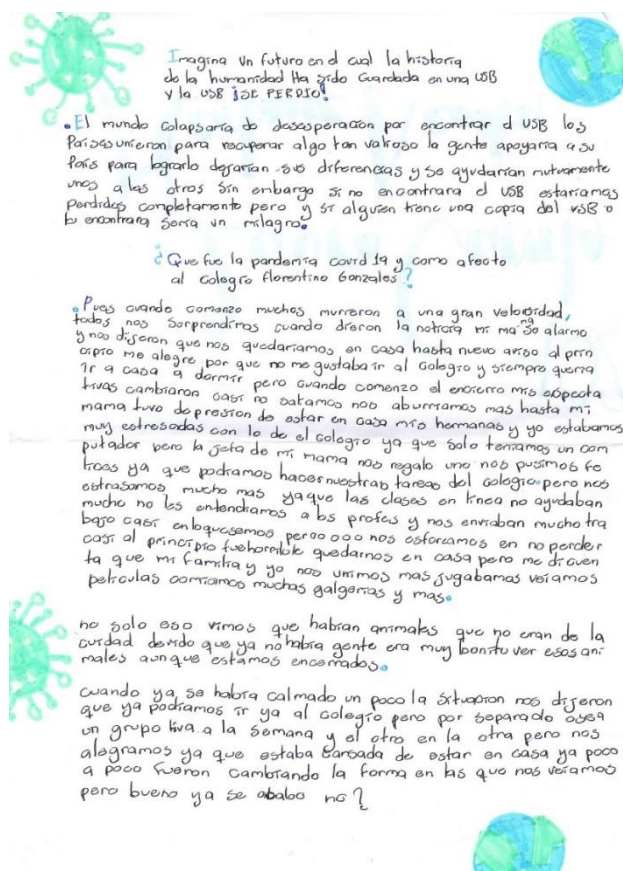 Imagina un futuro en el cual la historia
de la humanidad Ha sido Guardada en una USB
y la USB ¡SE PERDIO!
.El mundo colapsaria de desesperacion por encontrar el USB los
Paises unieron para recuperar algo tan valioso la gente apoyaria a su
Pais para lograrlo dejarian sus diferencias y se ayudarian mutuamente
unos a los otros sin embargo si no encontrara el USB estariamos
perdidos completamente pero y si alguien tiene una copia del USB o
lo encontrara seria un milagro.
¿Que fue la pandemia covid 19 y como afecto
al colegio florentino Gonzales?
.Pues cuando comenzo muchos murieron a una gran velocidad,
todos nos sorprendimos cuando dieron la noticia mi mamá se alarmo
y nos dijeron que nos quedariamos en casa hasta nuevo aviso al prin
cipio me alegre por que no me gustaba ir al colegio y siempre queria
ir a casa a dormir pero cuando comenzo el encierro mis expecta
tivas cambiaron casi no saliamos nos aburriamos mas hasta mi
mama tuvo depresion de estar en casa mis hermanas y yo estabamos
muy estresadas con lo de el colegio ya que solo teniamos un com
putador pero la jefa de mi mama nos regalo uno nos pusimos fe
lices ya que podiamos hacer nuestras tareas del colegio pero nos
estrasamos mucho mas ya que las clases en linea no ayudaban
mucho no les entendiamos a los profes y nos enviaban mucho tra
bajo casi enloquesemos peroo ooo nos esforzamos en no perder
casi al principio fue horrible quedarnos en casa pero me di cuen
ta que mi familia y yo nos unimos mas jugabamos veiamos
peliculas comiamos muchas galgerias y mas.
no solo eso vimos que habian animales que no eran de la
ciudad devido que ya no habia gente era muy bonito ver esos ani
males aunque estamos encerrados.
cuando ya se habia calmado un poco la situacion nos dijeron
que ya podiamos ir ya al colegio pero por separado osea
un grupo iva a la semana y el otro en la otra pero nos
alegramos ya que estaba cansada de estar en casa ya poco
a poco fueron cambiando la forma en las que nos veiamos
pero bueno ya se acabo no?